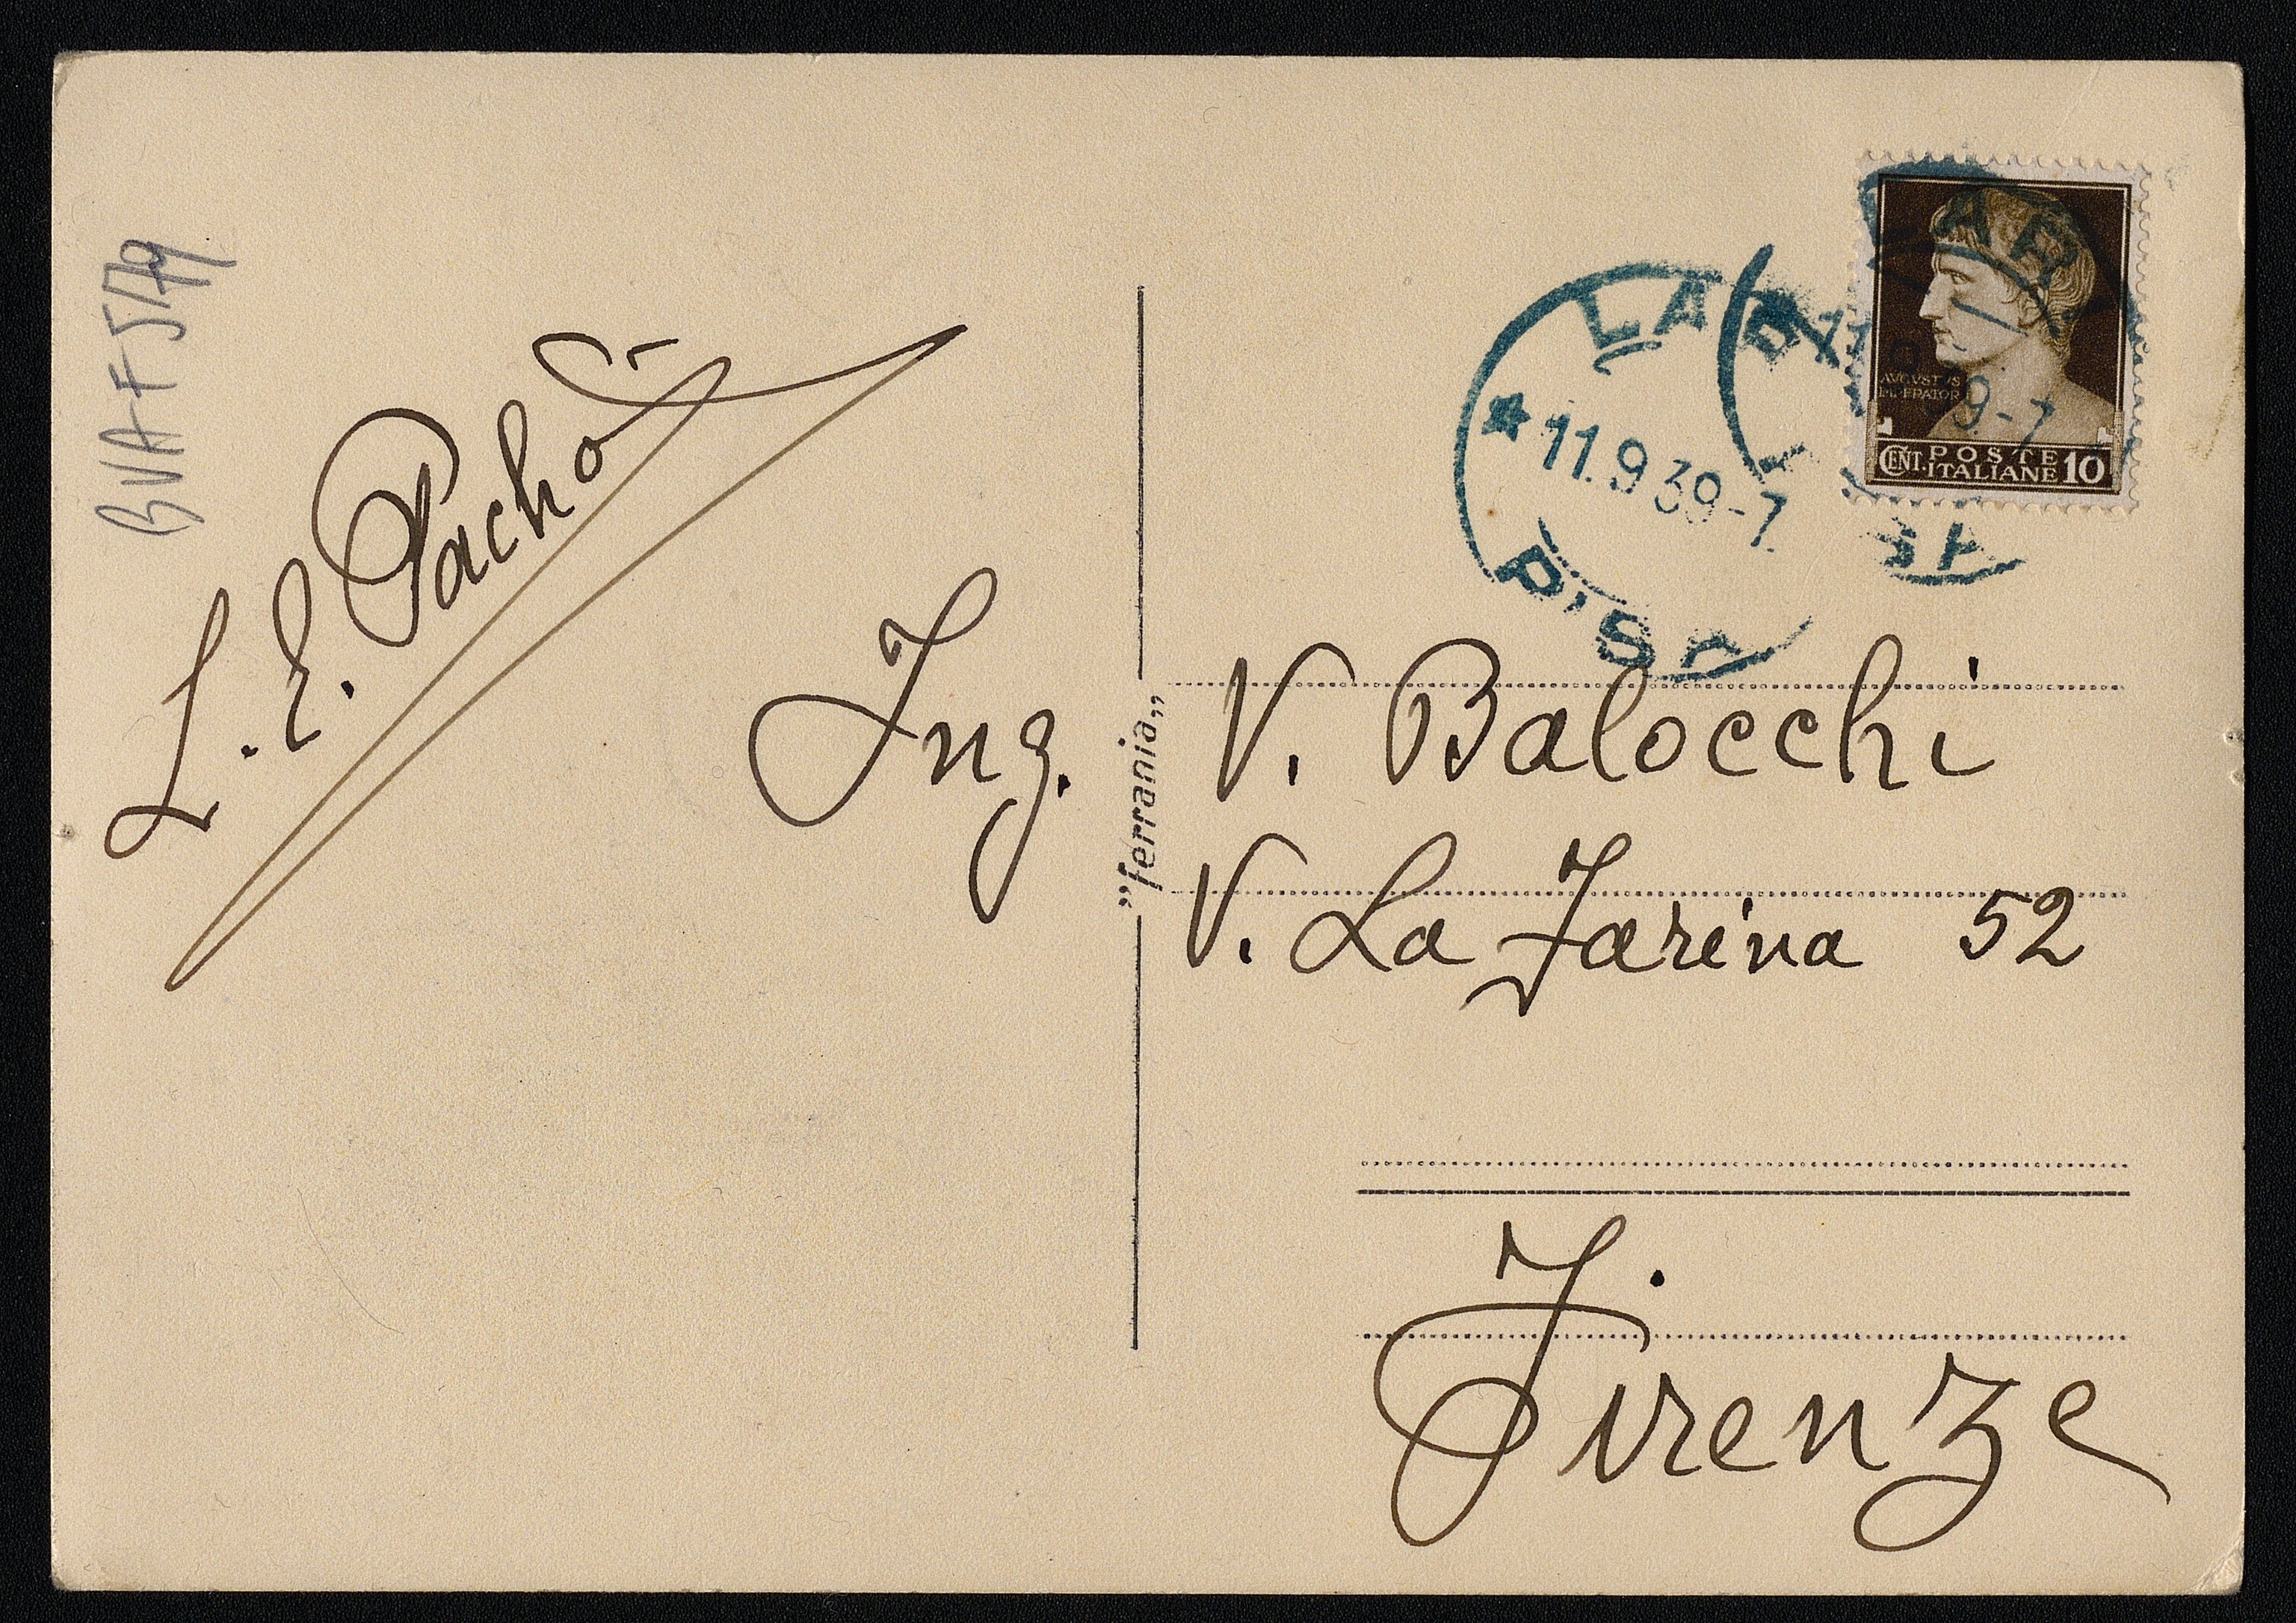 BVA F 5/79
L. E. Pachò
"ferrania"
LARI
* 11.9 39-7
PISA
AVGVSTVS
IMPERATOR
CENT. POSTE ITALIANE 10
Ing. V. Balocchi
V. La Farina 52
Firenze